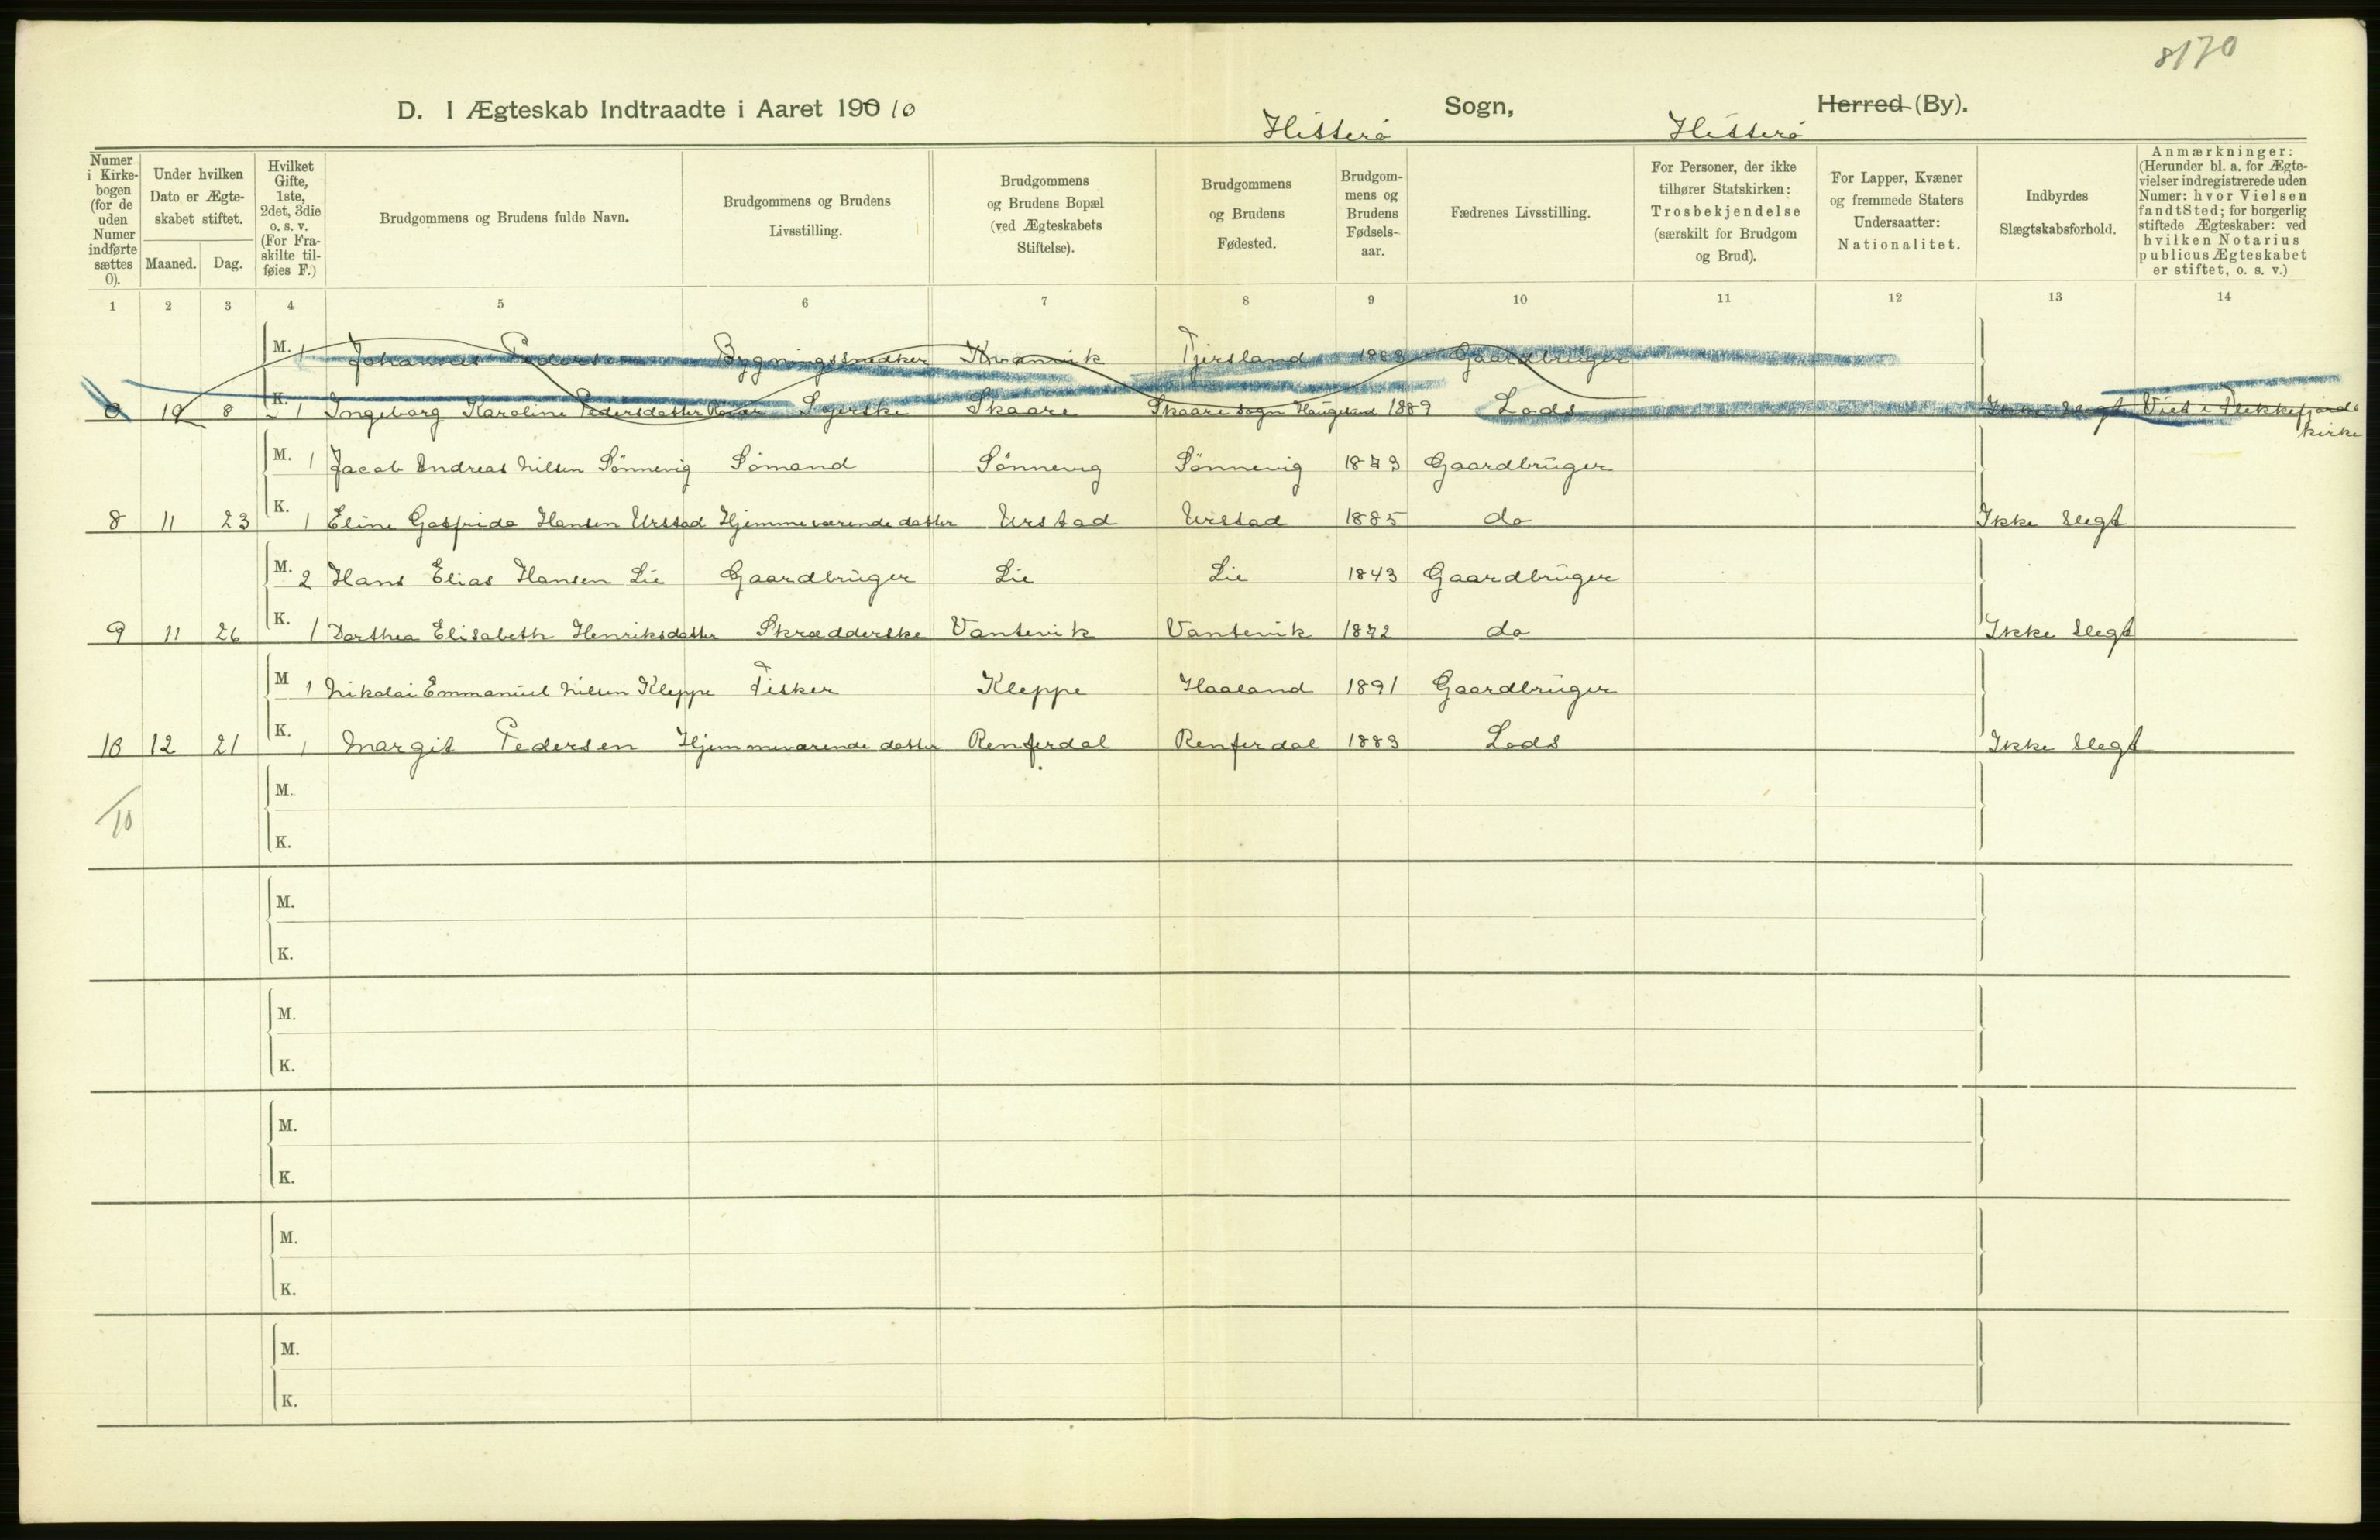 8170
D. I Ægteskab Indtraadte i Aaret 1900 10 Hitterø Sogn, Hitterø Herred (By).
Numer i Kirkebogen (for de uden Numer indførte sættes 0). Under hvilken Dato er Ægteskabet stiftet. Maaned. Dag. Hvilket Gifte, 1ste, 2det, 3die o. s. v. (For Fraskilte tilføies F.) Brudgommens og Brudens fulde Navn. Brudgommens og Brudens Livsstilling. Brudgommens og Brudens Bopæl (ved Ægteskabets Stiftelse). Brudgommens og Brudens Fødested. Brudgommens og Brudens Fødselsaar. Fædrenes Livsstilling. For Personer, der ikke tilhører Statskirken: Trosbekjendelse (særskilt for Brudgom og Brud). For Lapper, Kvæner og fremmede Staters Undersaatter: Nationalitet. Indbyrdes Slægtskabsforhold. Anmærkninger: (Herunder bl. a. for Ægtevielser indregistrerede uden Numer: hvor Vielsen fandt Sted; for borgerlig stiftede Ægteskaber: ved hvilken Notarius publicus Ægteskabet er stiftet, o. s. v.)
1 2 3 4 5 6 7 8 9 10 11 12 13 14
M. 1 Johannes Pedersen Bygningssnedker Kvanvik Fjersland 1883 Gaardbruger
0 10 8 K. 1 Ingeborg Karoline Pedersdatter Syerske Skaare Skaare sogn Haugesund 1889 Lods Ikke slegt Viet i Flekkefjords kirke
M. 1 Jacob Andreas Nilsen Sönnevig Sömand Sönnevig Sönnevig 1873 Gaardbruger
8 11 23 K. 1 Eline Gasfrida Hansen Urstad Hjemmeværende datter Urstad Urstad 1885 do Ikke slegt
M. 2 Hans Elias Hansen Lie Gaardbruger Lie Lie 1843 Gaardbruger
9 11 26 K. 1 Dorthea Elisabeth Henriksdatter Skrædderske Vantevik Vantevik 1872 do Ikke slegt
M 1 Nikolai Emmanuel Nilsen Kleppe Fisker Kleppe Haaland 1891 Gaardbruger
10 12 21 K. 1 Margit Pedersen Hjemmeværende datter Renferdal Renferdal 1883 Lods Ikke slegt
M.
10
K.
M.
K.
M.
K.
M.
K.
M.
K.
M.
K.